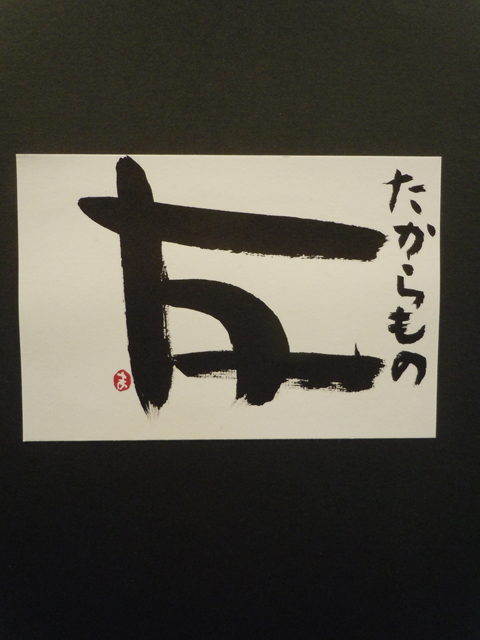 友
たからもの